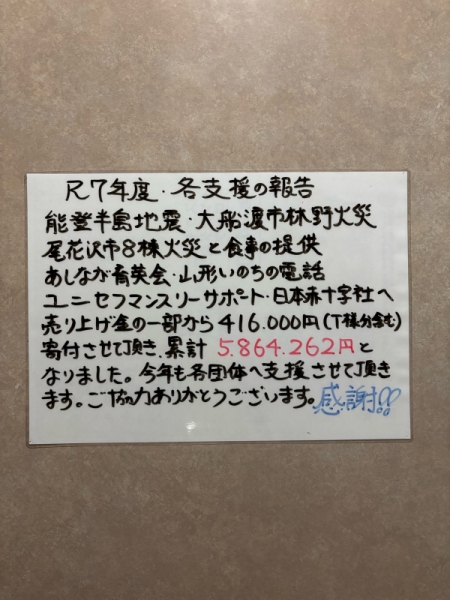 R7年度・各支援の報告
能登半島地震・大船渡市林野火災
尾花沢市8棟火災と食事の提供
あしなが育英会・山形いのちの電話
ユニセフマンスリーサポート・日本赤十字社へ
売り上げ金の一部から416.000円(T様分含む)
寄付させて頂き、累計 5.864.262円と
なりました。今年も各団体へ支援させて頂き
ます。ご協力ありがとうございます。感謝!!